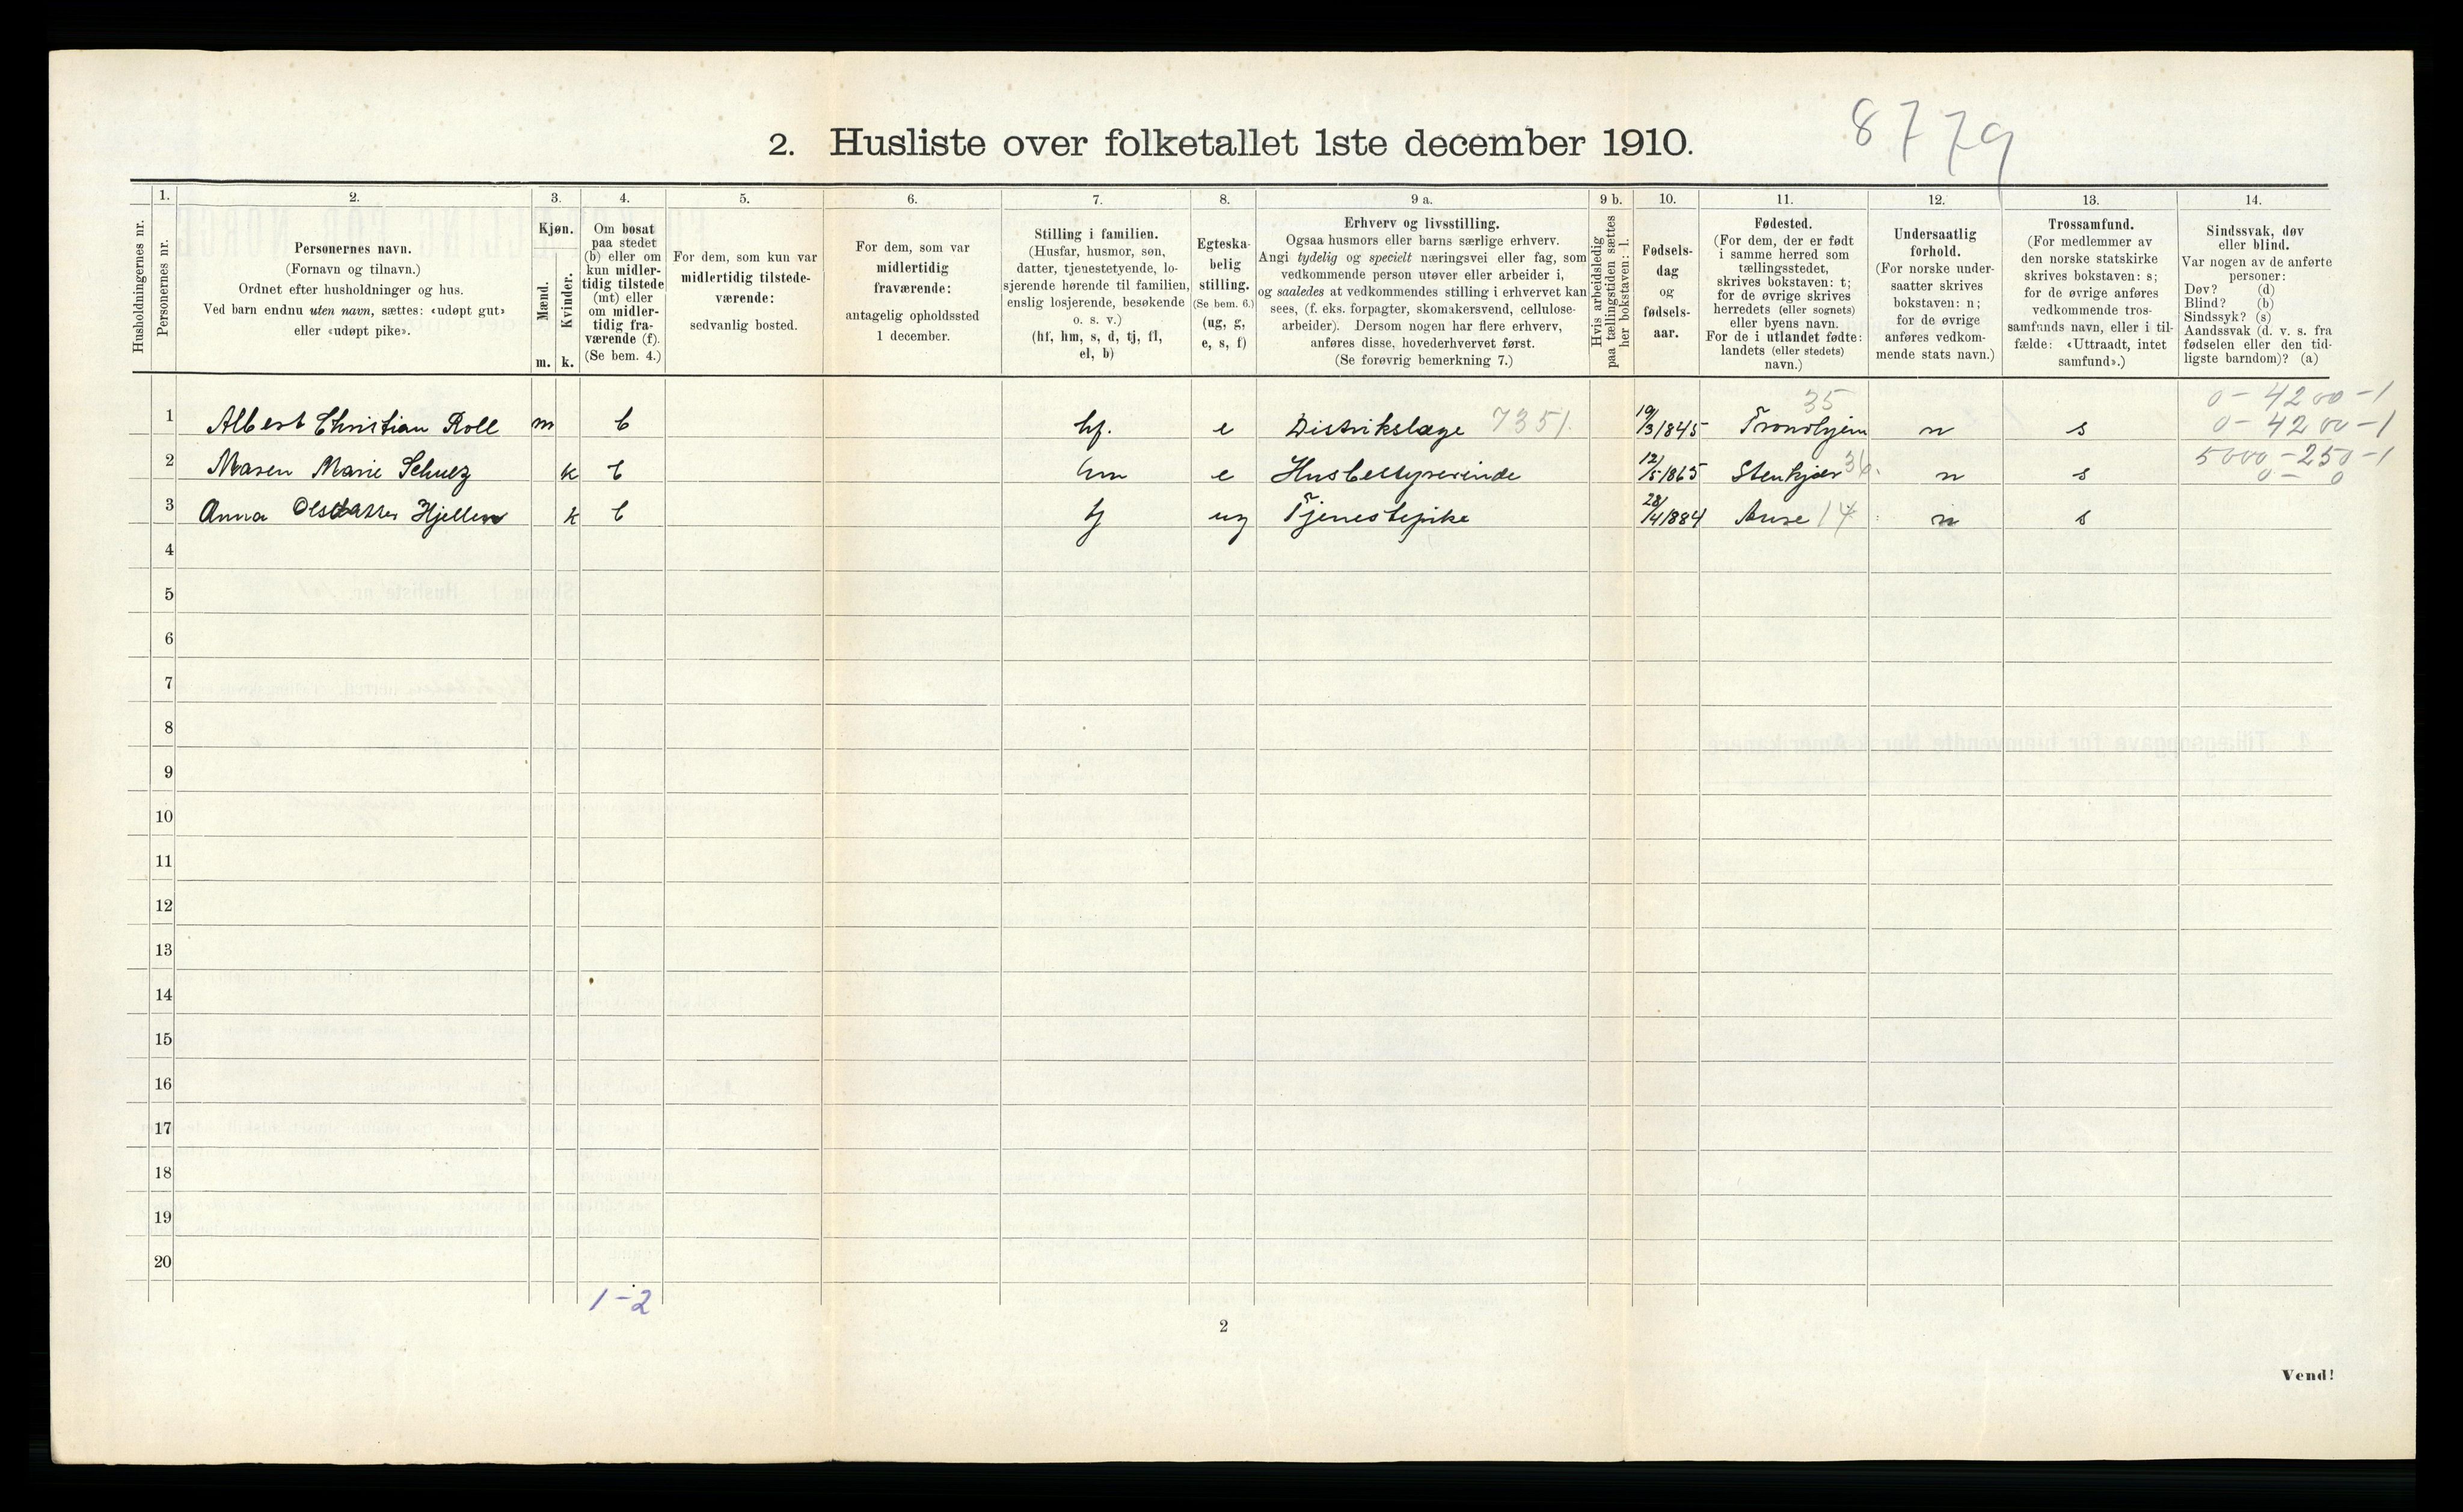 8779
2. Husliste over folketallet 1ste december 1910.
Husholdningernes nr.
1.
Personernes nr.
2.
Personernes navn.
(Fornavn og tilnavn.)
Ordnet efter husholdninger og hus.
Ved barn endnu uten navn, sættes: «udøpt gut»
eller «udøpt pike».
3.
Kjøn.
Mænd.
m.
Kvinder.
k.
4.
Om bosat
paa stedet
(b) eller om
kun midler-
tidig tilstede
(mt) eller
om midler-
tidig fra-
værende (f).
(Se bem. 4.)
5.
For dem, som kun var
midlertidig tilstede-
værende:
sedvanlig bosted.
6.
For dem, som var
midlertidig
fraværende:
antagelig opholdssted
1 december.
7.
Stilling i familien.
(Husfar, husmor, søn,
datter, tjenestetyende, lo-
sjerende hørende til familien,
enslig losjerende, besøkende
o. s. v.)
(hf, hm, s, d, tj, fl,
el, b)
8.
Egteska-
belig
stilling.
(Se bem. 6.)
(ug, g,
e, s, f)
9 a.
Erhverv og livsstilling.
Ogsaa husmors eller barns særlige erhverv.
Angi tydelig og specielt næringsvei eller fag, som
vedkommende person utøver eller arbeider i,
og saaledes at vedkommendes stilling i erhvervet kan
sees, (f. eks. forpagter, skomakersvend, cellulose-
arbeider). Dersom nogen har flere erhverv,
anføres disse, hovederhvervet først.
(Se forøvrig bemerkning 7.)
9 b.
Hvis arbeidsledig
paa tællingstiden sættes
her bokstaven: l.
10.
Fødsels-
dag
og
fødsels-
aar.
11.
Fødested.
(For dem, der er født
i samme herred som
tællingsstedet,
skrives bokstaven: t;
for de øvrige skrives
herredets (eller sognets)
eller byens navn.
For de i utlandet fødte:
landets (eller stedets)
navn.)
12.
Undersaatlig
forhold.
(For norske under-
saatter skrives
bokstaven: n;
for de øvrige
anføres vedkom-
mende stats navn.)
13.
Trossamfund.
(For medlemmer av
den norske statskirke
skrives bokstaven: s;
for de øvrige anføres
vedkommende tros-
samfunds navn, eller i til-
fælde: «Uttraadt, intet
samfund».)
14.
Sindssvak, døv
eller blind.
Var nogen av de anførte
personer:
Døv? (d)
Blind? (b)
Sindssyk? (s)
Aandssvak (d. v. s. fra
fødselen eller den tid-
ligste barndom)? (a)
35 0-4200-1
1 Albert Christian Roll m b hf. e Distrikslæge 7351. 19/3 1845 Trondhjem n s 0-4200-1
2 Maren Marie Schulz k b hm e Husbestyrerinde 12/5 1865 Stenkjær 36. n s 5000-250-1
0-0
3 Anna Olsdatter Hjellen k b tj ug Tjenestepike 28/4 1884 Aure 14 n s
4
5
6
7
8
9
10
11
12
13
14
15
16
17
18
19
20
1-2
2
Vend!